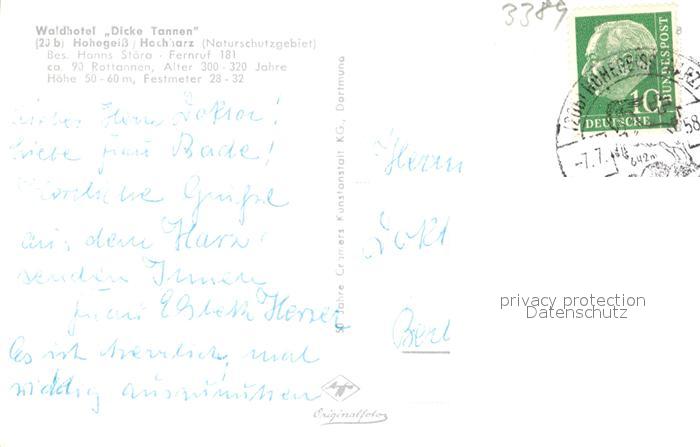 3389
Waldhotel „Dicke Tannen"
(20b) Hohegeiß / Hochharz (Naturschutzgebiet)
Bes. Hanns Störa - Fernruf 181
ca. 90 Rottannen, Alter 300-320 Jahre
Höhe 50-60 m, Festmeter 28-32
Lieber Herr Doktor!
Liebe Frau Bade!
Herzliche Grüße
aus dem Harz
senden Ihnen
Frau Elsbeth
Es ist herrlich, mal
richtig auszuruhen
Jahre Cramers Kunstanstalt KG., Dortmund
Agfa
Originalfoto
Herrn
Dokt
Berl
10
DEUTSCHE
BUNDESPOST
(20b) HOHEGEISS
-7.7.58
642m
privacy protection
Datenschutz